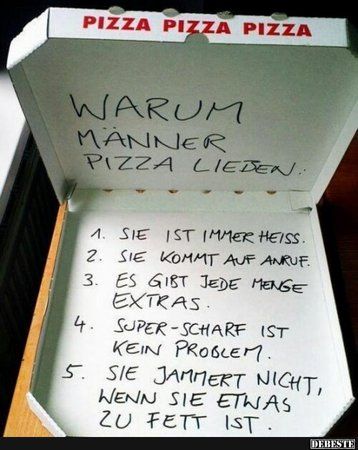 PIZZA PIZZA PIZZA
WARUM
MÄNNER
PIZZA LIEBEN:
1. SIE IST IMMER HEISS.
2. SIE KOMMT AUF ANRUF.
3. ES GIBT JEDE MENGE
EXTRAS.
4. SUPER-SCHARF IST
KEIN PROBLEM.
5. SIE JAMMERT NICHT,
WENN SIE ETWAS
ZU FETT IST.
DEBESTE